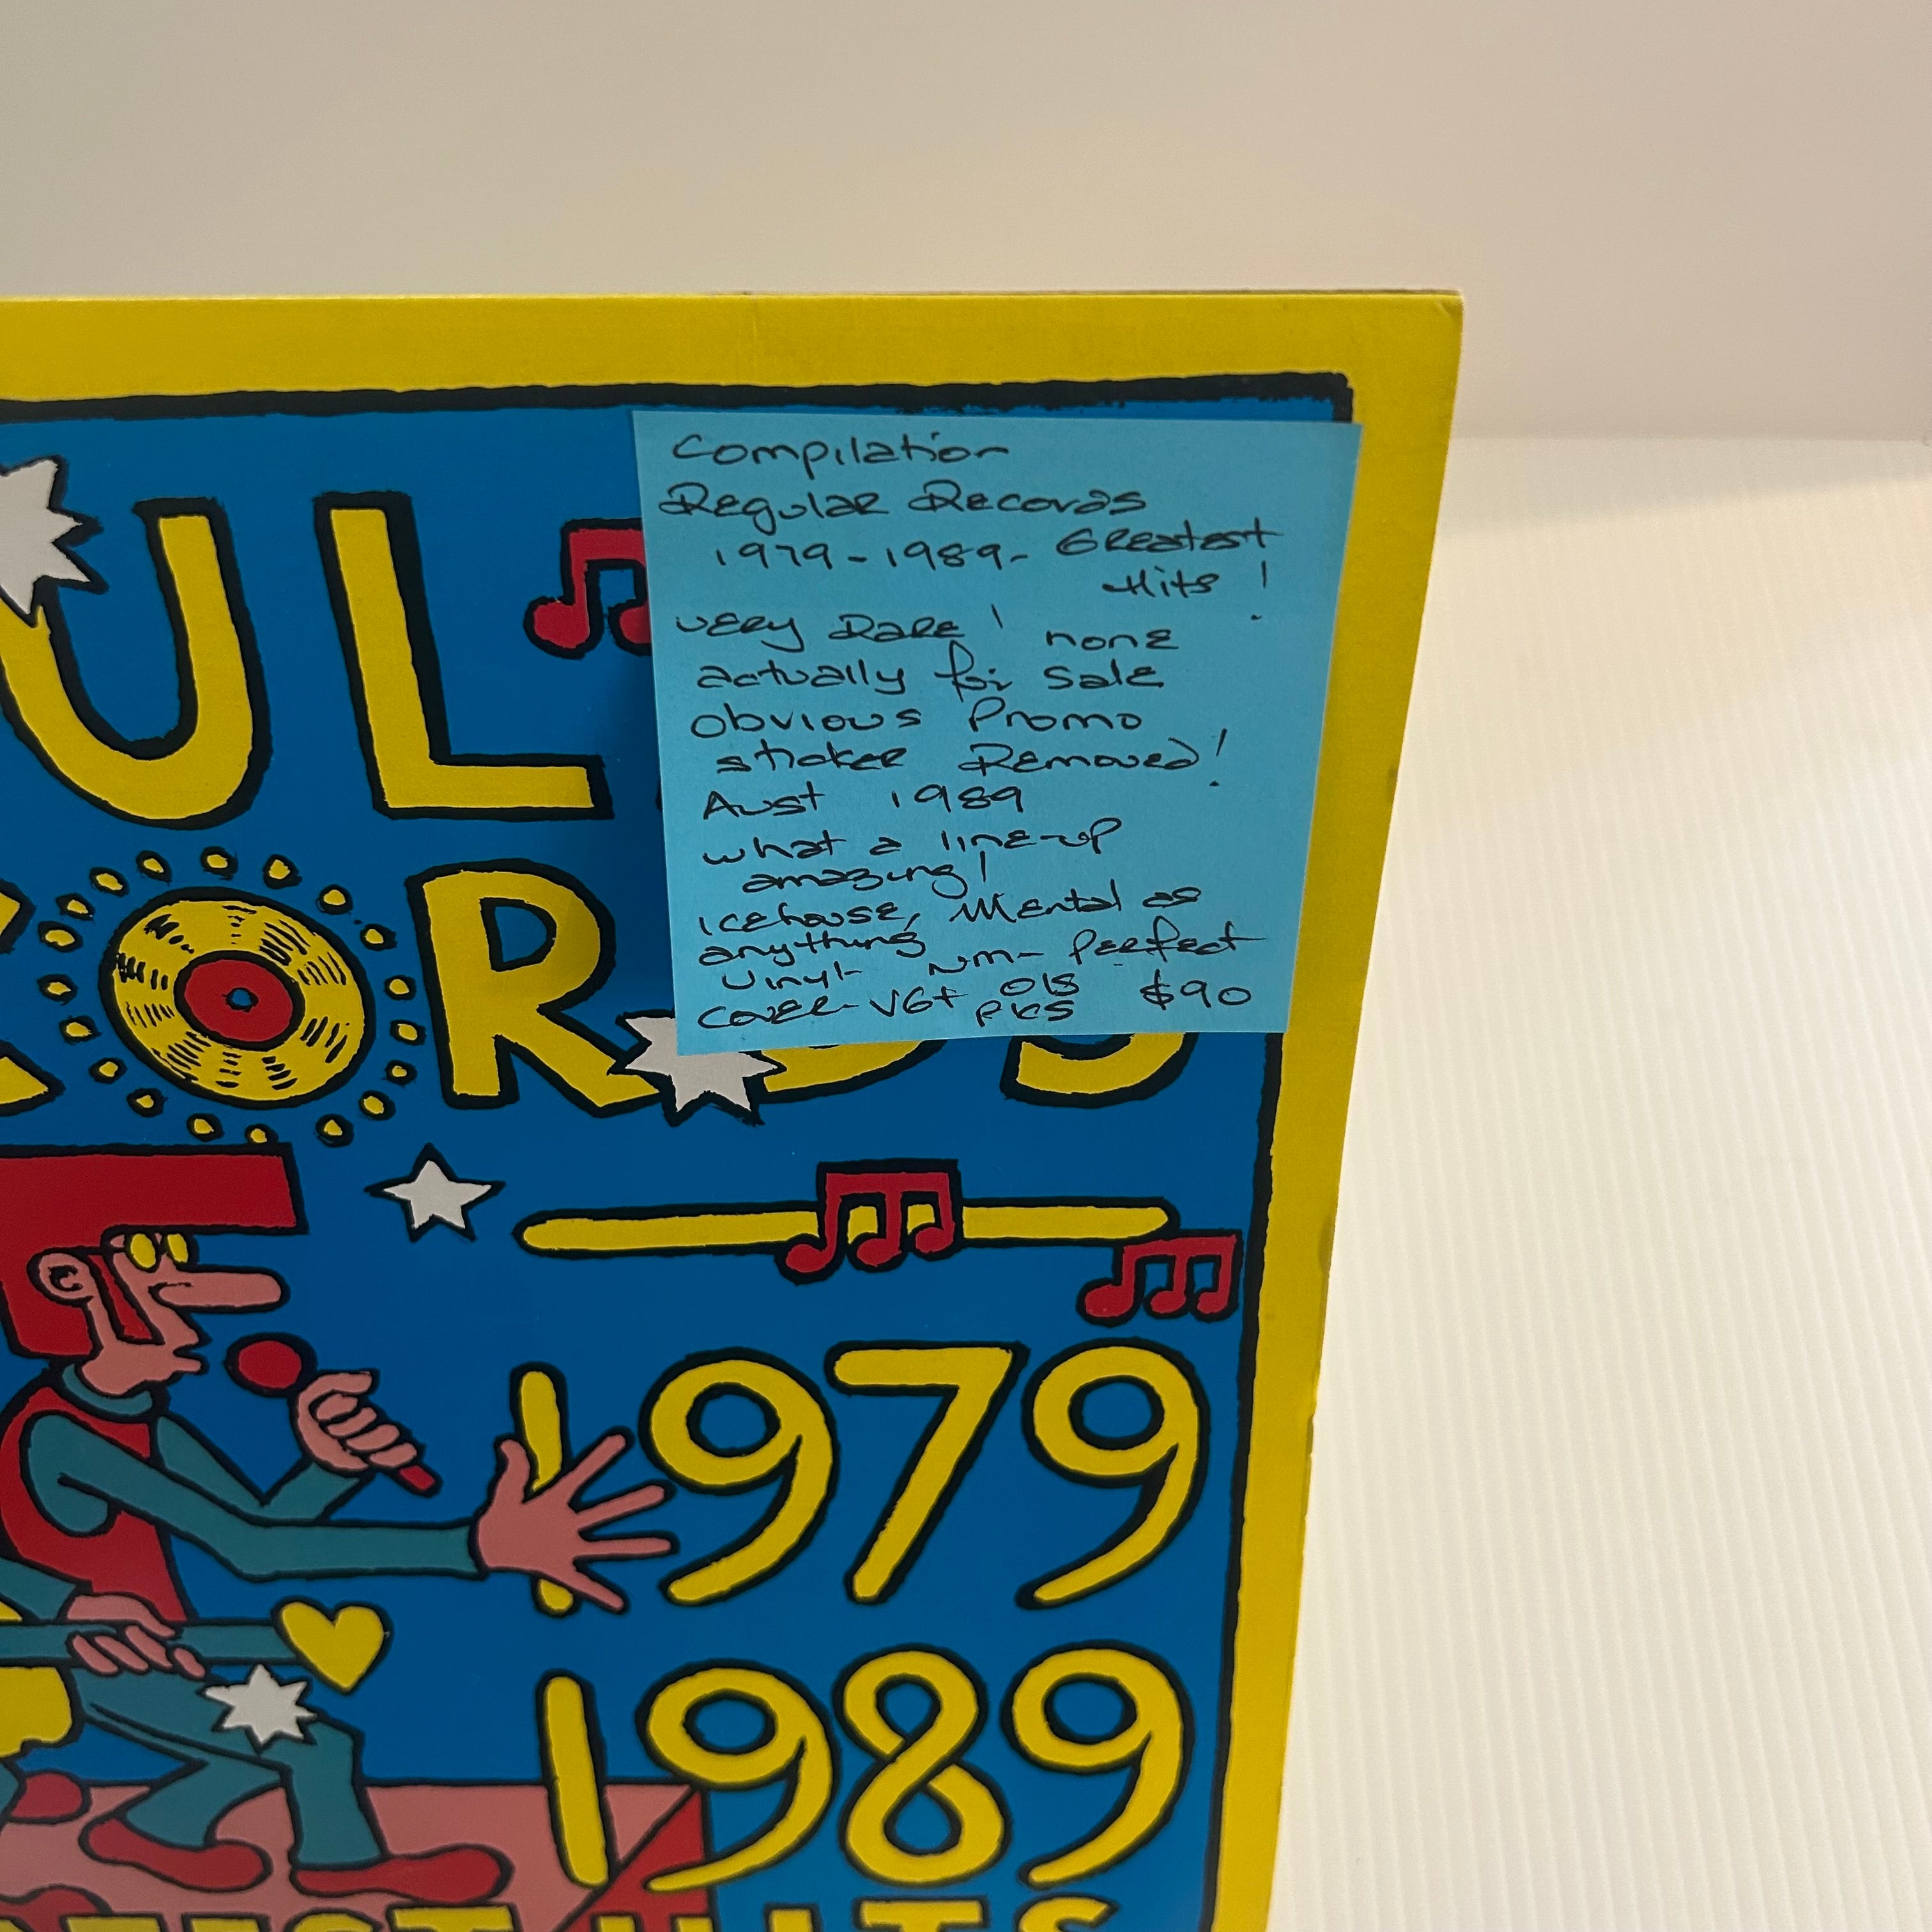 Compilation
Regular Records
1979-1989- Greatest
Hits!
very Rare! none
actually for sale
obvious Promo
sticker Removed!
Aust 1989
what a line-up
amazing!
icehouse, Mental as
anything
Vinyl- NM- Perfect
Cover- VG+ O/S
PKS $90
UL
ORDS
1979
1989
HITS